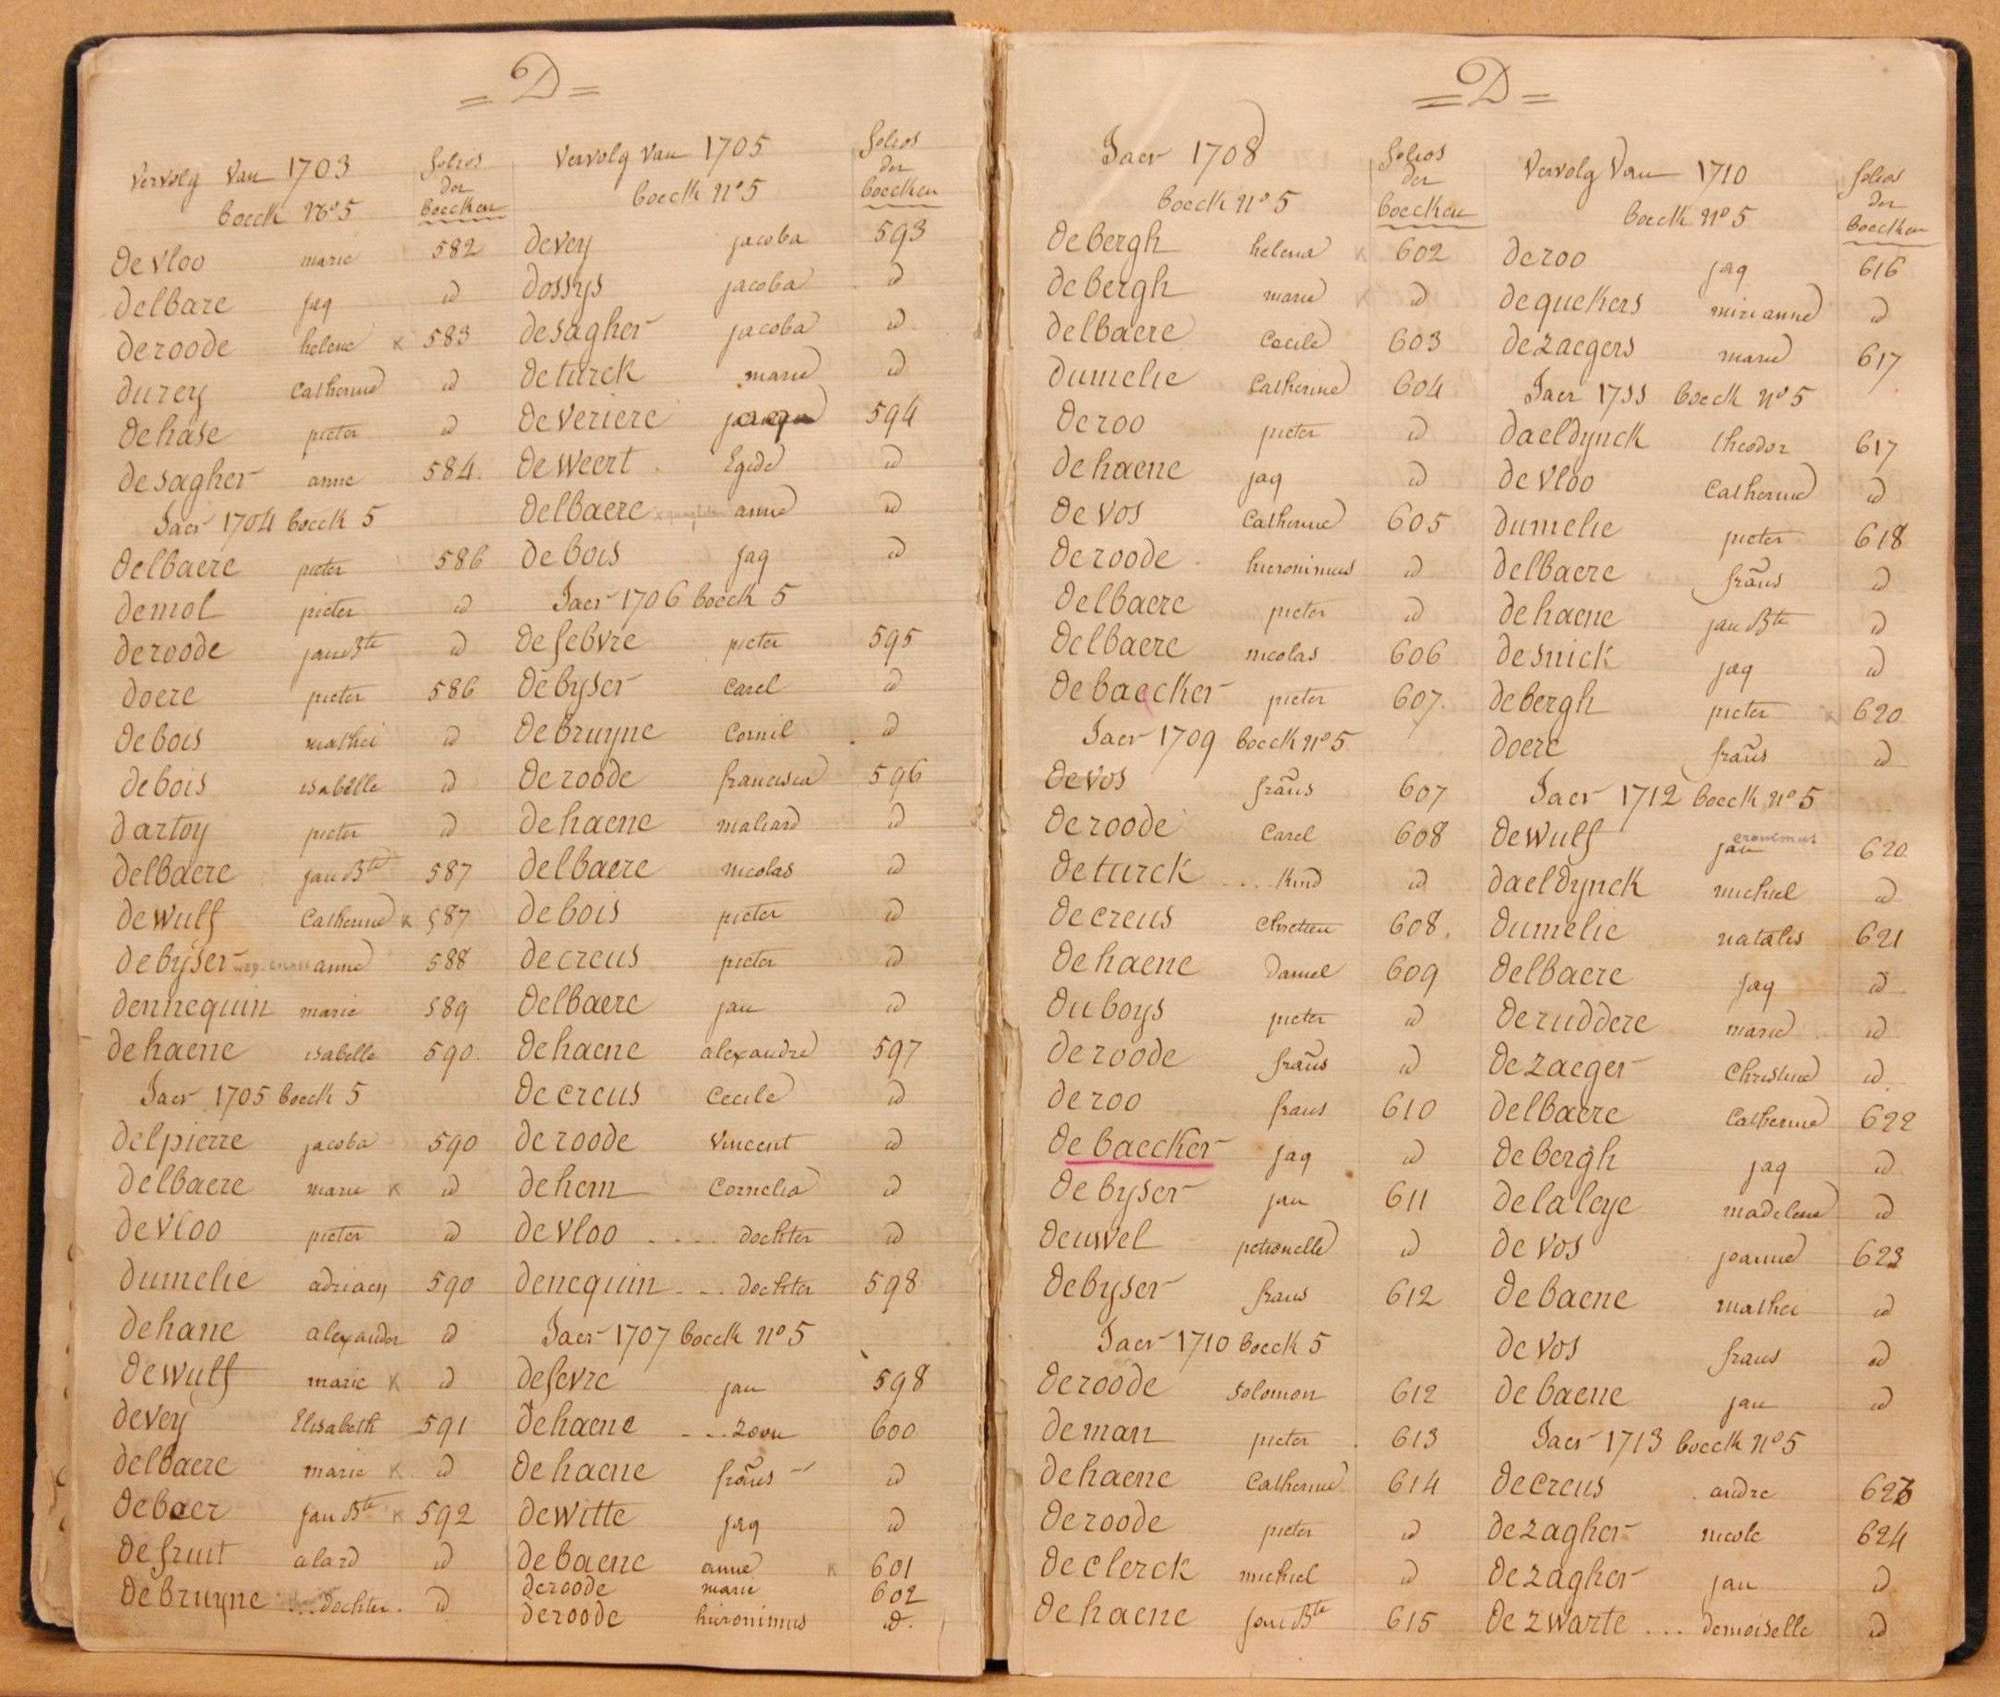 = D =
Vervolg Van 1703
boeck No 5
folios
der
boecken
de vloo marie 582
delbare jaq id
deroode helene x 583
durey Catherine id
dehase pieter id
desagher anne 584.
Jaer 1704 boeck 5
delbaere pieter 586
demol pieter id
deroode jan Bte id
doere pieter 586
debois mathei id
debois isabelle id
dartoy pieter id
delbaere jan Bte 587
dewulf Catherine x 587
debyser anne 588
dennequin marie 589
dehaene isabelle 590.
Jaer 1705 boeck 5
delpierre jacoba 590
delbaere marie x id
devloo pieter id
dumelie adriaen 590
dehane alexander id
dewulf marie x id
devey Elisabeth 591
delbaere marie x id
debaer jan Bte x 592
defruit alard id
debruyne ... dochter. id
Vervolg Van 1705
boeck No 5
folios
der
boecken
devey jacoba 593
dossys jacoba id
desagher jacoba id
deturck marie id
deveriere 594
deweert Egide id
delbaere anne id
debois jaq id
Jaer 1706 boeck 5
defebvre pieter 595
debyser Carel id
debruyne Cornil id
deroode francisca 596
dehaene maliard id
delbaere nicolas id
debois pieter id
decreus pieter id
delbaere jan id
dehaene alexandre 597
decreus Cecile id
deroode Vincent id
dehem Cornelia id
devloo .... dochter id
denequin ... dochter 598
Jaer 1707 boeck No 5
defevre jan 598
dehaene ... zoon 600
dehaene frans id
dewitte jaq id
debaene anne x 601
deroode marie 602
deroode hieronimus id.
= D =
Jaer 1708
boeck No 5
folios
der
boecken
debergh helena x 602
debergh marie x id
delbaere Cecile 603
dumelie Catherine 604
deroo pieter id
dehaene jaq id
devos Catherine 605
deroode hieronimus id
delbaere pieter id
delbaere nicolas 606
debaecker pieter 607.
Jaer 1709 boeck No 5
devos frans 607
deroode Carel 608
deturck ... kind id
decreus Chretien 608.
dehaene daniel 609
duboys pieter id
deroode frans id
deroo frans 610
debaecker jaq id
debyser jan 611
deuwel petronelle id
debyser frans 612
Jaer 1710 boeck 5
deroode solomon 612
deman pieter 613
dehaene Catherine 614
deroode pieter id
declerck michiel id
dehaene jan Bte 615
Vervolg Van 1710
boeck No 5
folios
der
boecken
deroo jaq 616
dequekers mirianne id
dezaegers marie 617
Jaer 1711 boeck No 5
daeldynck theodor 617
devloo Catherine id
dumelie pieter 618
delbaere frans id
dehaene jan Bte id
desnick jaq id
debergh pieter x 620
doere frans id
Jaer 1712 boeck No 5
dewulf jan 620
daeldynck michiel id
dumelie natalis 621
delbaere jaq id
deruddere marie id
dezaeger Christine id.
delbaere Catherine 622
debergh jaq id
delaleye madelene id
devos joanne 623
debaene mathei id
devos frans id
debaene jan id
Jaer 1713 boeck No 5
decreus andre 623
dezagher nicole 624
dezagher jan id
dezwarte ... demoiselle id